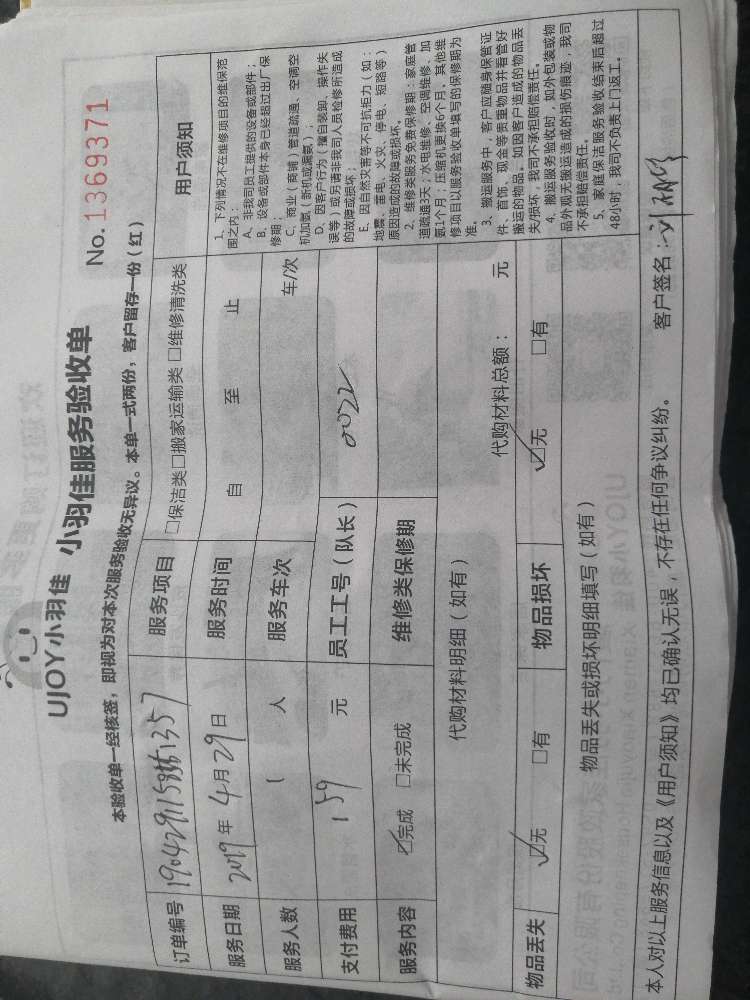 UJOY小羽佳 小羽佳服务验收单
No. 1369371
本验收单一经核签，即视为对本次服务验收无异议。本单一式两份，客户留存一份（红）
订单编号
服务项目 □保洁类□搬家运输类 □维修清洗类
服务日期 2019 年 4 月 29 日 服务时间 自 至 止
服务人数 1 人 服务车次 车/次
支付费用 159 元 员工工号（队长） 0022
服务内容 ☑完成 □未完成 维修类保修期
代购材料明细（如有） 代购材料总额： 元
物品丢失 ☑无 □有 物品损坏 ☑无 □有
物品丢失或损坏明细填写（如有）
用户须知
1、下列情况不在维修项目的维保范
围之内：
A、非我司员工提供的设备或部件；
B、设备或部件本身已经超过出厂保
修期；
C、商业（商铺）管道疏通、空调空
机加氨（新机或漏氨）；
D、因客户行为（擅自装卸、操作失
误等）或另请非我司人员检修所造成
的故障或损坏；
E、因自然灾害等不可抗拒力（如：
地震、雷电、火灾、停电、短路等）
原因造成的故障或损坏。
2、维修类服务免费保修期：家庭管
道疏通3天；水电维修、空调维修、加
氨1个月；压缩机更换6个月，其他维
修项目以服务验收单填写的保修期为
准。
3、搬运服务中，客户应随身保管证
件、首饰、现金等贵重物品并看管好
搬运的物品。如因客户造成的物品丢
失/损坏，我司不承担赔偿责任。
4、搬运服务验收时，如外包装或物
品外观无搬运造成的损伤痕迹，我司
不承担赔偿责任。
5、家庭保洁服务验收结束后超过
48小时，我司不负责上门返工。
本人对以上服务信息以及《用户须知》均已确认无误，不存在任何争议纠纷。 客户签名：